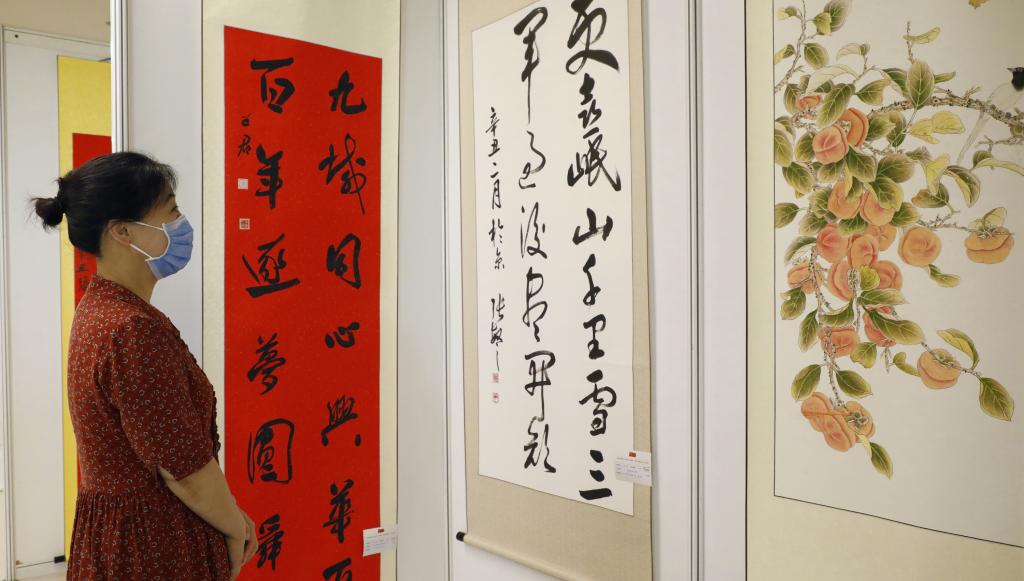 九域同心興華
百年逐夢圓舜
更喜岷山千里雪三
軍過後盡開顏
辛丑二月於京